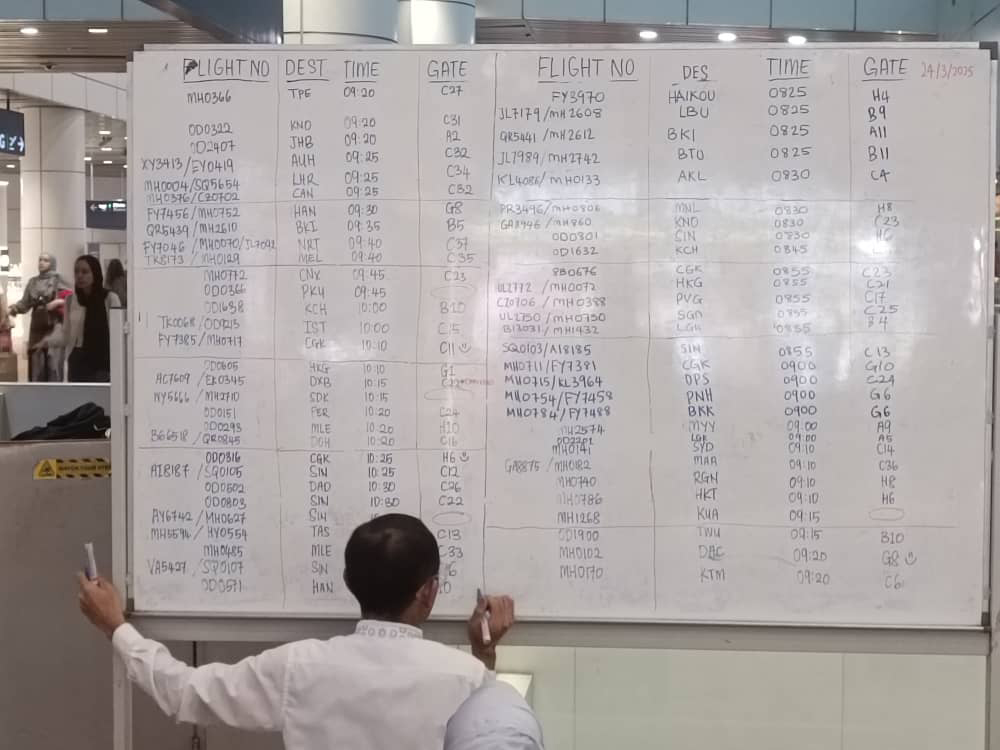 FLIGHT NO DEST TIME GATE
MH0366 TPE 09:20 C27
OD0322 KNO 09:20 C31
OD2407 JHB 09:20 A2
XY3913/EY0419 AUH 09:25 C32
MH0004/SQ5654 LHR 09:25 C34
MH0376/CZ0702 CAN 09:25 C32
FY7456/MH0752 HAN 09:30 G8
QR5439/MH2610 BKI 09:35 B5
FY7046/MH0070/JL7092 NRT 09:40 C37
TK8173/MH0129 MEL 09:40 C35
MH0772 CNX 09:45 C23
OD0366 PKU 09:45
OD1638 KCH 10:00 B10
TK0068/OD9213 IST 10:00 C15
FY7385/MH0717 CGK 10:10 C11
OD0605 HKG 10:10 G1
AC7609/EK0345 DXB 10:15 C22
NY5666/MH2710 SDK 10:15
OD0151 PER 10:20 C24
OD0293 MLE 10:20 H10
B66518/QR0845 DOH 10:20 C16
OD0316 CGK 10:25 H6
AI8187/SQ0105 SIN 10:25 C12
OD0502 DAD 10:30 C26
OD0803 SIN 10:30 C22
AY6742/MH0627 SIN
MH5594/HY0554 TAS C13
MH0485 MLE C33
VA5427/SQ0107 SIN
OD0571 HAN
FLIGHT NO DES TIME GATE 24/3/2025
FY3970 HAIKOU 0825 H4
JL7179/MH2608 LBU 0825 B9
QR5441/MH2612 BKI 0825 A11
JL7989/MH2742 BTU 0825 B11
KL4086/MH0133 AKL 0830 CA
PR3496/MH0806 MNL 0830 H8
GA8946/MH860 KNO 0830 C23
OD0801 SIN 0830
OD1632 KCH 0845
8B0676 CGK 0855 C23
UL2772/MH0072 HKG 0855 C21
CZ0706/MH0388 PVG 0855 C17
UL2750/MH0750 SGN 0855 C25
BI3031/MH1432 LGK 0855 B4
SQ0103/AI8185 SIN 0855 C13
MH0711/FY7381 CGK 0900 G10
MH0715/KL3964 DPS 0900 C24
MH0754/FY7458 PNH 0900 G6
MH0784/FY7488 BKK 0900 G6
MH2574 MYY 09:00 A9
OD2201 LGK 09:00 A5
MH0141 SYD 09:10 C14
GA8875/MH0182 MAA 09:10 C36
MH0740 RGN 09:10 H8
MH0786 HKT 09:10 H6
MH1268 KUA 09:15
OD1900 TWU 09:15 B10
MH0102 DAC 09:20 G8
MH0170 KTM 09:20 C6